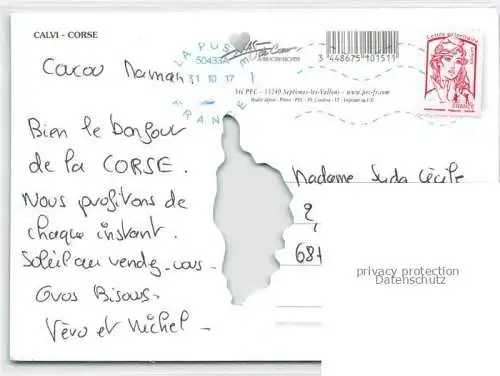 CALVI - CORSE
LA PUSTE
50433A
31 10 17
FRANCE
3 448675 101511
Sté PEC - 13240 Septèmes-les-Vallons / www.pec-fr.com
Lettre prioritaire
FRANCE
Coucou Maman
Bien le bonjour
de la CORSE.
Nous profitons de
chaque instant.
Soleil au rendez-vous -
Gros Bisous -
Véro et Michel -
Madame Cécile
2
68
privacy protection
Datenschutz